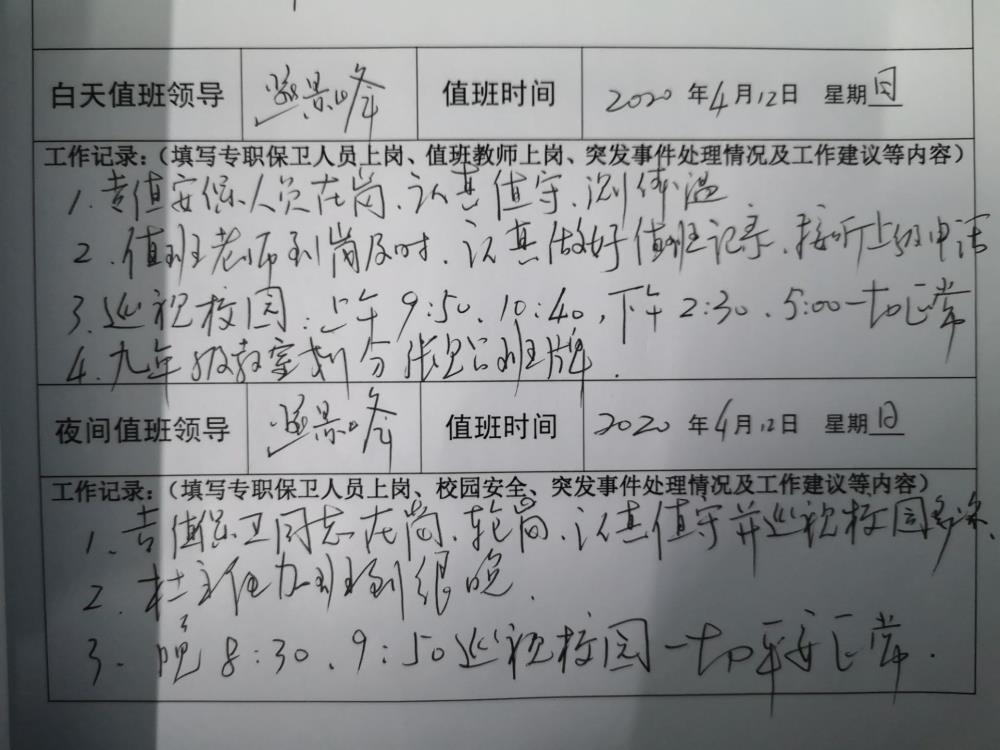 白天值班领导 景峰 值班时间 2020 年 4 月 12 日 星期 日
工作记录：（填写专职保卫人员上岗、值班教师上岗、突发事件处理情况及工作建议等内容）
1. 值安保人员在岗、认真值守、测体温
2. 值班老师到岗及时、认真做好值班记录、接听上级电话
3. 巡视校园：上午 9:50、10:40，下午 2:30、5:00一切正常
4. 九年级教室划分张贴班牌.
夜间值班领导 景峰 值班时间 2020 年 4 月 12 日 星期 日
工作记录：（填写专职保卫人员上岗、校园安全、突发事件处理情况及工作建议等内容）
1. 值保卫同志在岗、轮岗、认真值守并巡视校园多次、
2. 杜主任加班到很晚.
3. 晚 8:30、9:50巡视校园一切平安正常.